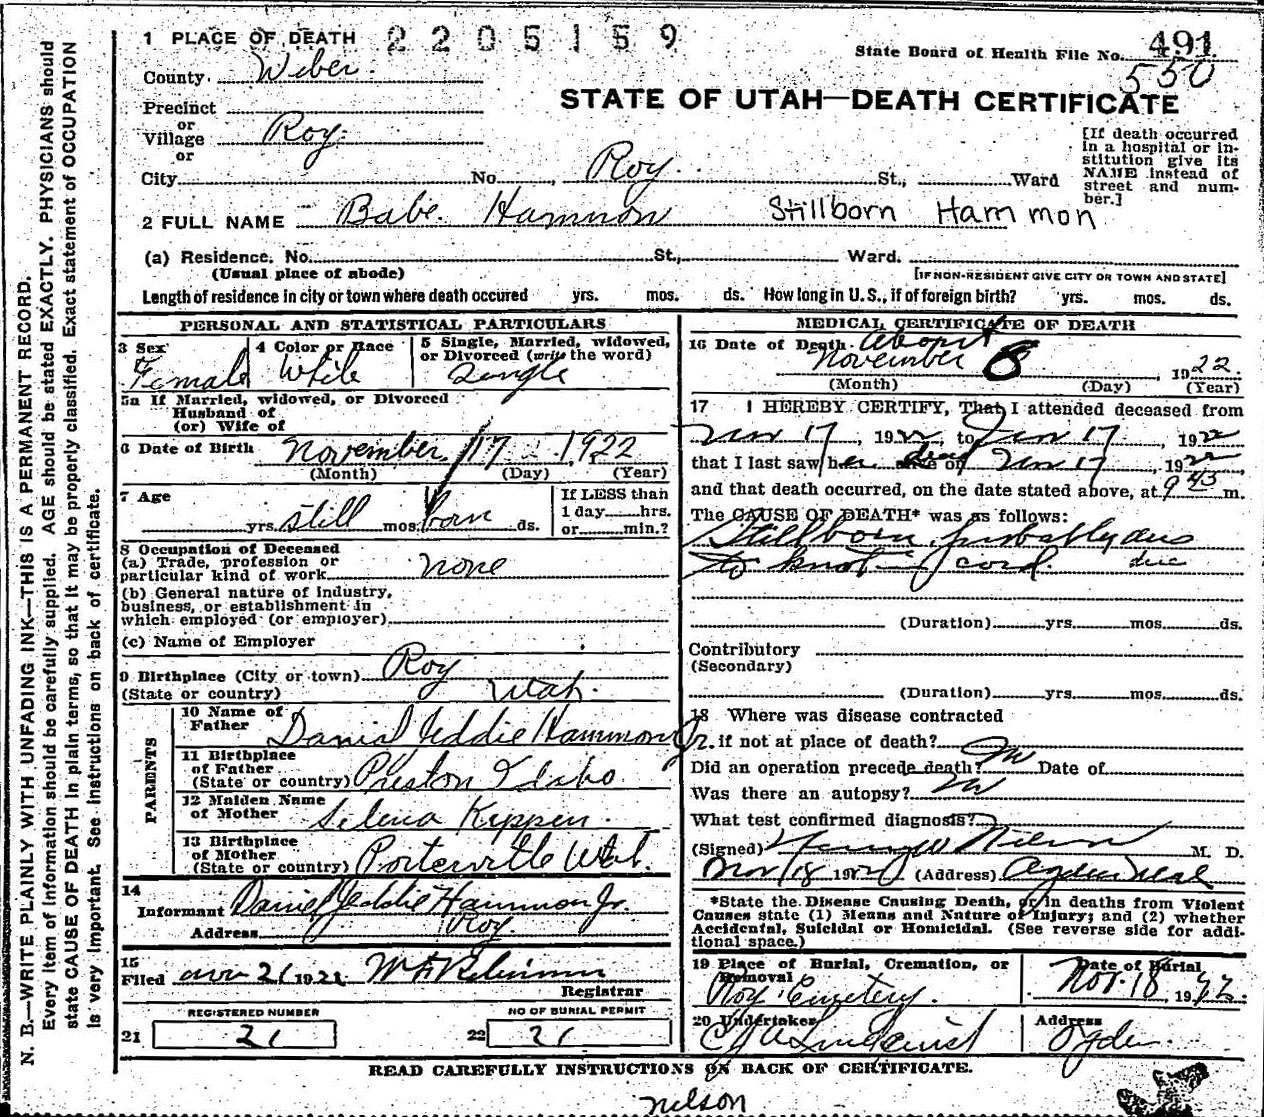 1 PLACE OF DEATH 2205159
State Board of Health File No. 491
550
County Weber
STATE OF UTAH—DEATH CERTIFICATE
Precinct
or
Village Roy
or
City No. , Roy St., Ward
[If death occurred in a hospital or in-
stitution give its
NAME instead of
street and num-
ber.]
2 FULL NAME Babe Hammon Stillborn Hammon
(a) Residence. No. St., Ward.
(Usual place of abode) [IF NON-RESIDENT GIVE CITY OR TOWN AND STATE]
Length of residence in city or town where death occured yrs. mos. ds. How long in U. S., if of foreign birth? yrs. mos. ds.
PERSONAL AND STATISTICAL PARTICULARS
3 Sex 4 Color or Race 5 Single, Married, widowed,
or Divorced (write the word)
Female White Single
5a If Married, widowed, or Divorced
Husband of
(or) Wife of
6 Date of Birth November 17 1922
(Month) (Day) (Year)
7 Age If LESS than
1 day hrs.
yrs. still mos. born ds. or min.?
8 Occupation of Deceased
(a) Trade, profession or
particular kind of work none
(b) General nature of industry,
business, or establishment in
which employed (or employer)
(c) Name of Employer
9 Birthplace (City or town) Roy
(State or country) Utah
PARENTS
10 Name of
Father Daniel Jeddie Hammon Jr.
11 Birthplace
of Father
(State or country) Preston Idaho
12 Maiden Name
of Mother Selena Kippen
13 Birthplace
of Mother
(State or country) Porterville Utah.
14
Informant Daniel Jeddie Hammon Jr.
Address Roy
15
Filed Nov 21 1922
Registrar
REGISTERED NUMBER NO OF BURIAL PERMIT
21 21 22 21
MEDICAL CERTIFICATE OF DEATH
16 Date of Death About
November 8 1922.
(Month) (Day) (Year)
17 I HEREBY CERTIFY, That I attended deceased from
Nov 17, 1922, to Nov 17, 1922
that I last saw her dead on Nov 17, 1922
and that death occurred, on the date stated above, at 9 45 m.
The CAUSE OF DEATH* was as follows:
Stillborn, probably due
to knot in cord. due
(Duration) yrs. mos. ds.
Contributory
(Secondary)
(Duration) yrs. mos. ds.
18 Where was disease contracted
if not at place of death?
Did an operation precede death? no Date of
Was there an autopsy? no
What test confirmed diagnosis?
(Signed) M. D.
Nov 18 1922 (Address) Ogden Utah
*State the Disease Causing Death, or in deaths from Violent
Causes state (1) Means and Nature of Injury; and (2) whether
Accidental, Suicidal or Homicidal. (See reverse side for addi-
tional space.)
19 Place of Burial, Cremation, or Removal Date of Burial
Roy Cemetery. Nov. 18 1922
20 Undertaker Address
Lindquist Ogden
READ CAREFULLY INSTRUCTIONS ON BACK OF CERTIFICATE.
nelson
N. B.—WRITE PLAINLY WITH UNFADING INK—THIS IS A PERMANENT RECORD.
Every item of information should be carefully supplied. AGE should be stated EXACTLY. PHYSICIANS should
state CAUSE OF DEATH in plain terms, so that it may be properly classified. Exact statement of OCCUPATION
is very important. See instructions on back of certificate.